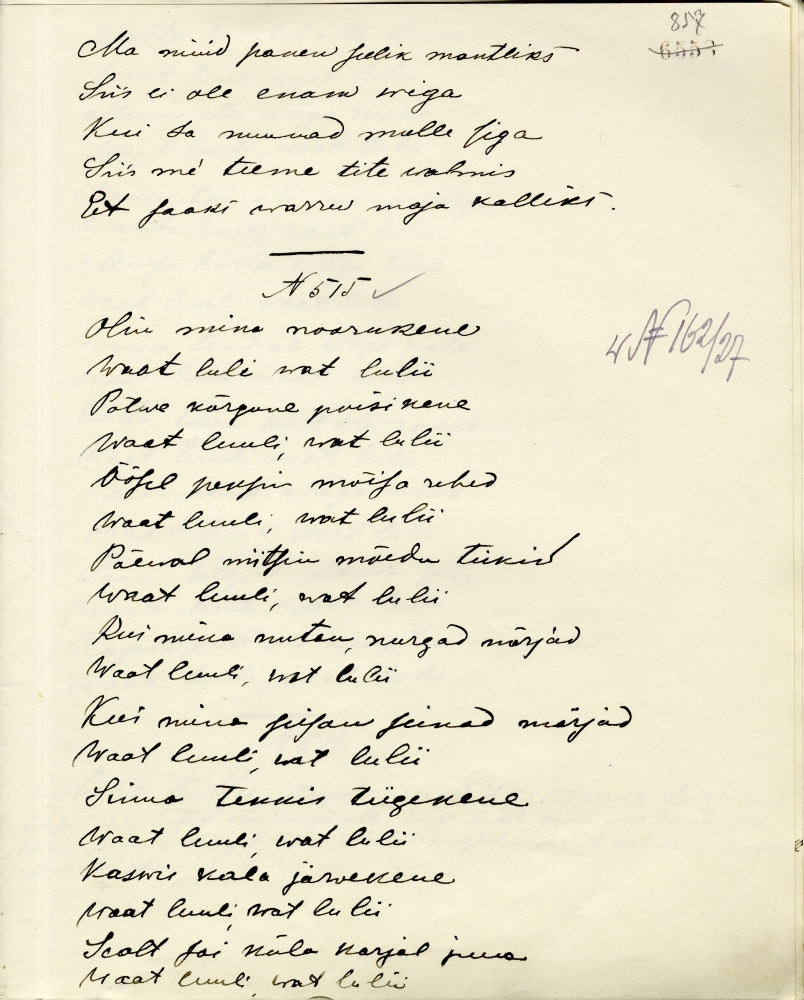 857
6553
Ma nüüd panen seelik mantliks
Siis ei ole enam wiga
Kui sa nuumad mulle siga
Siis me teeme tite walmis
Et saaks warru maja kalliks.
N 515 ✓
Olin mina noorukene
Waat luli wat lulii
Põlwe kõrgune poisikene
Waat luuli, wat lulii
Öösel peksin mõisa rehed
Waat luuli, wat lulii
Päewal niitsin mõedu tükid
Waat luuli, wat lulii
Kui mina nutan, nurgad märjad
Waat luuli, wat lulii
Kui mina seisan seinad märjad
Waat luuli, wat lulii
Sinna tekkis tiigekene
Waat luuli, wat lulii
Kaswis kala järwekene
Waat luuli, wat lulii
Sealt sai küla karjal juua
Waat luuli, wat lulii
N 162/27